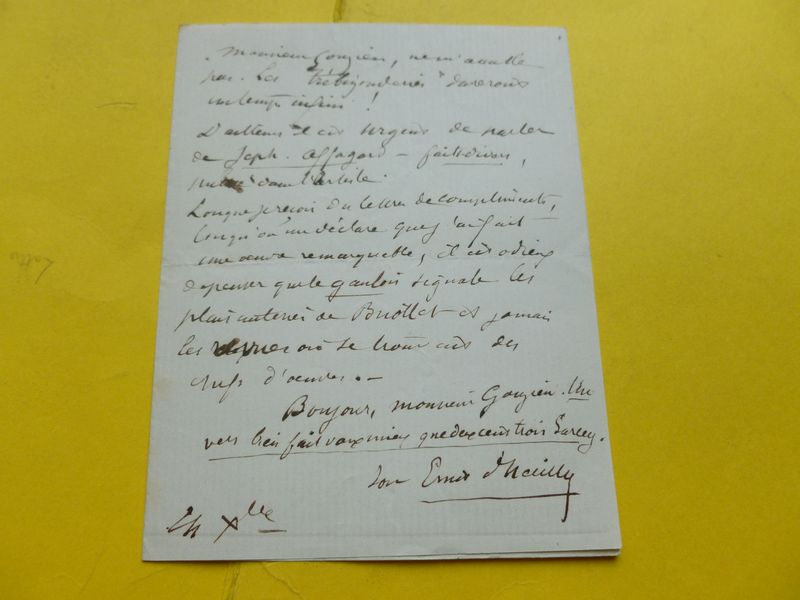 Monsieur Gouzien, ne m'accable
pas. Les "trébizonderies" dureront
un temps infini !
D'ailleurs il est urgent de parler
de Jeph. Affagard – faits-divers,
dans l'artiste.
Lorsque je reçois des lettres de compliments,
lorsqu'on me déclare que j'ai fait
une œuvre remarquable, il est odieux
de penser que le gaulois signale les
plaisanteries de Briollet et jamais
les où se trouvent des
chefs d'œuvre. –
Bonjour, monsieur Gouzien. Un
vers bien fait vaux mieux que deux cent trois Sarcey.
Ton Ernest d'Hervilly